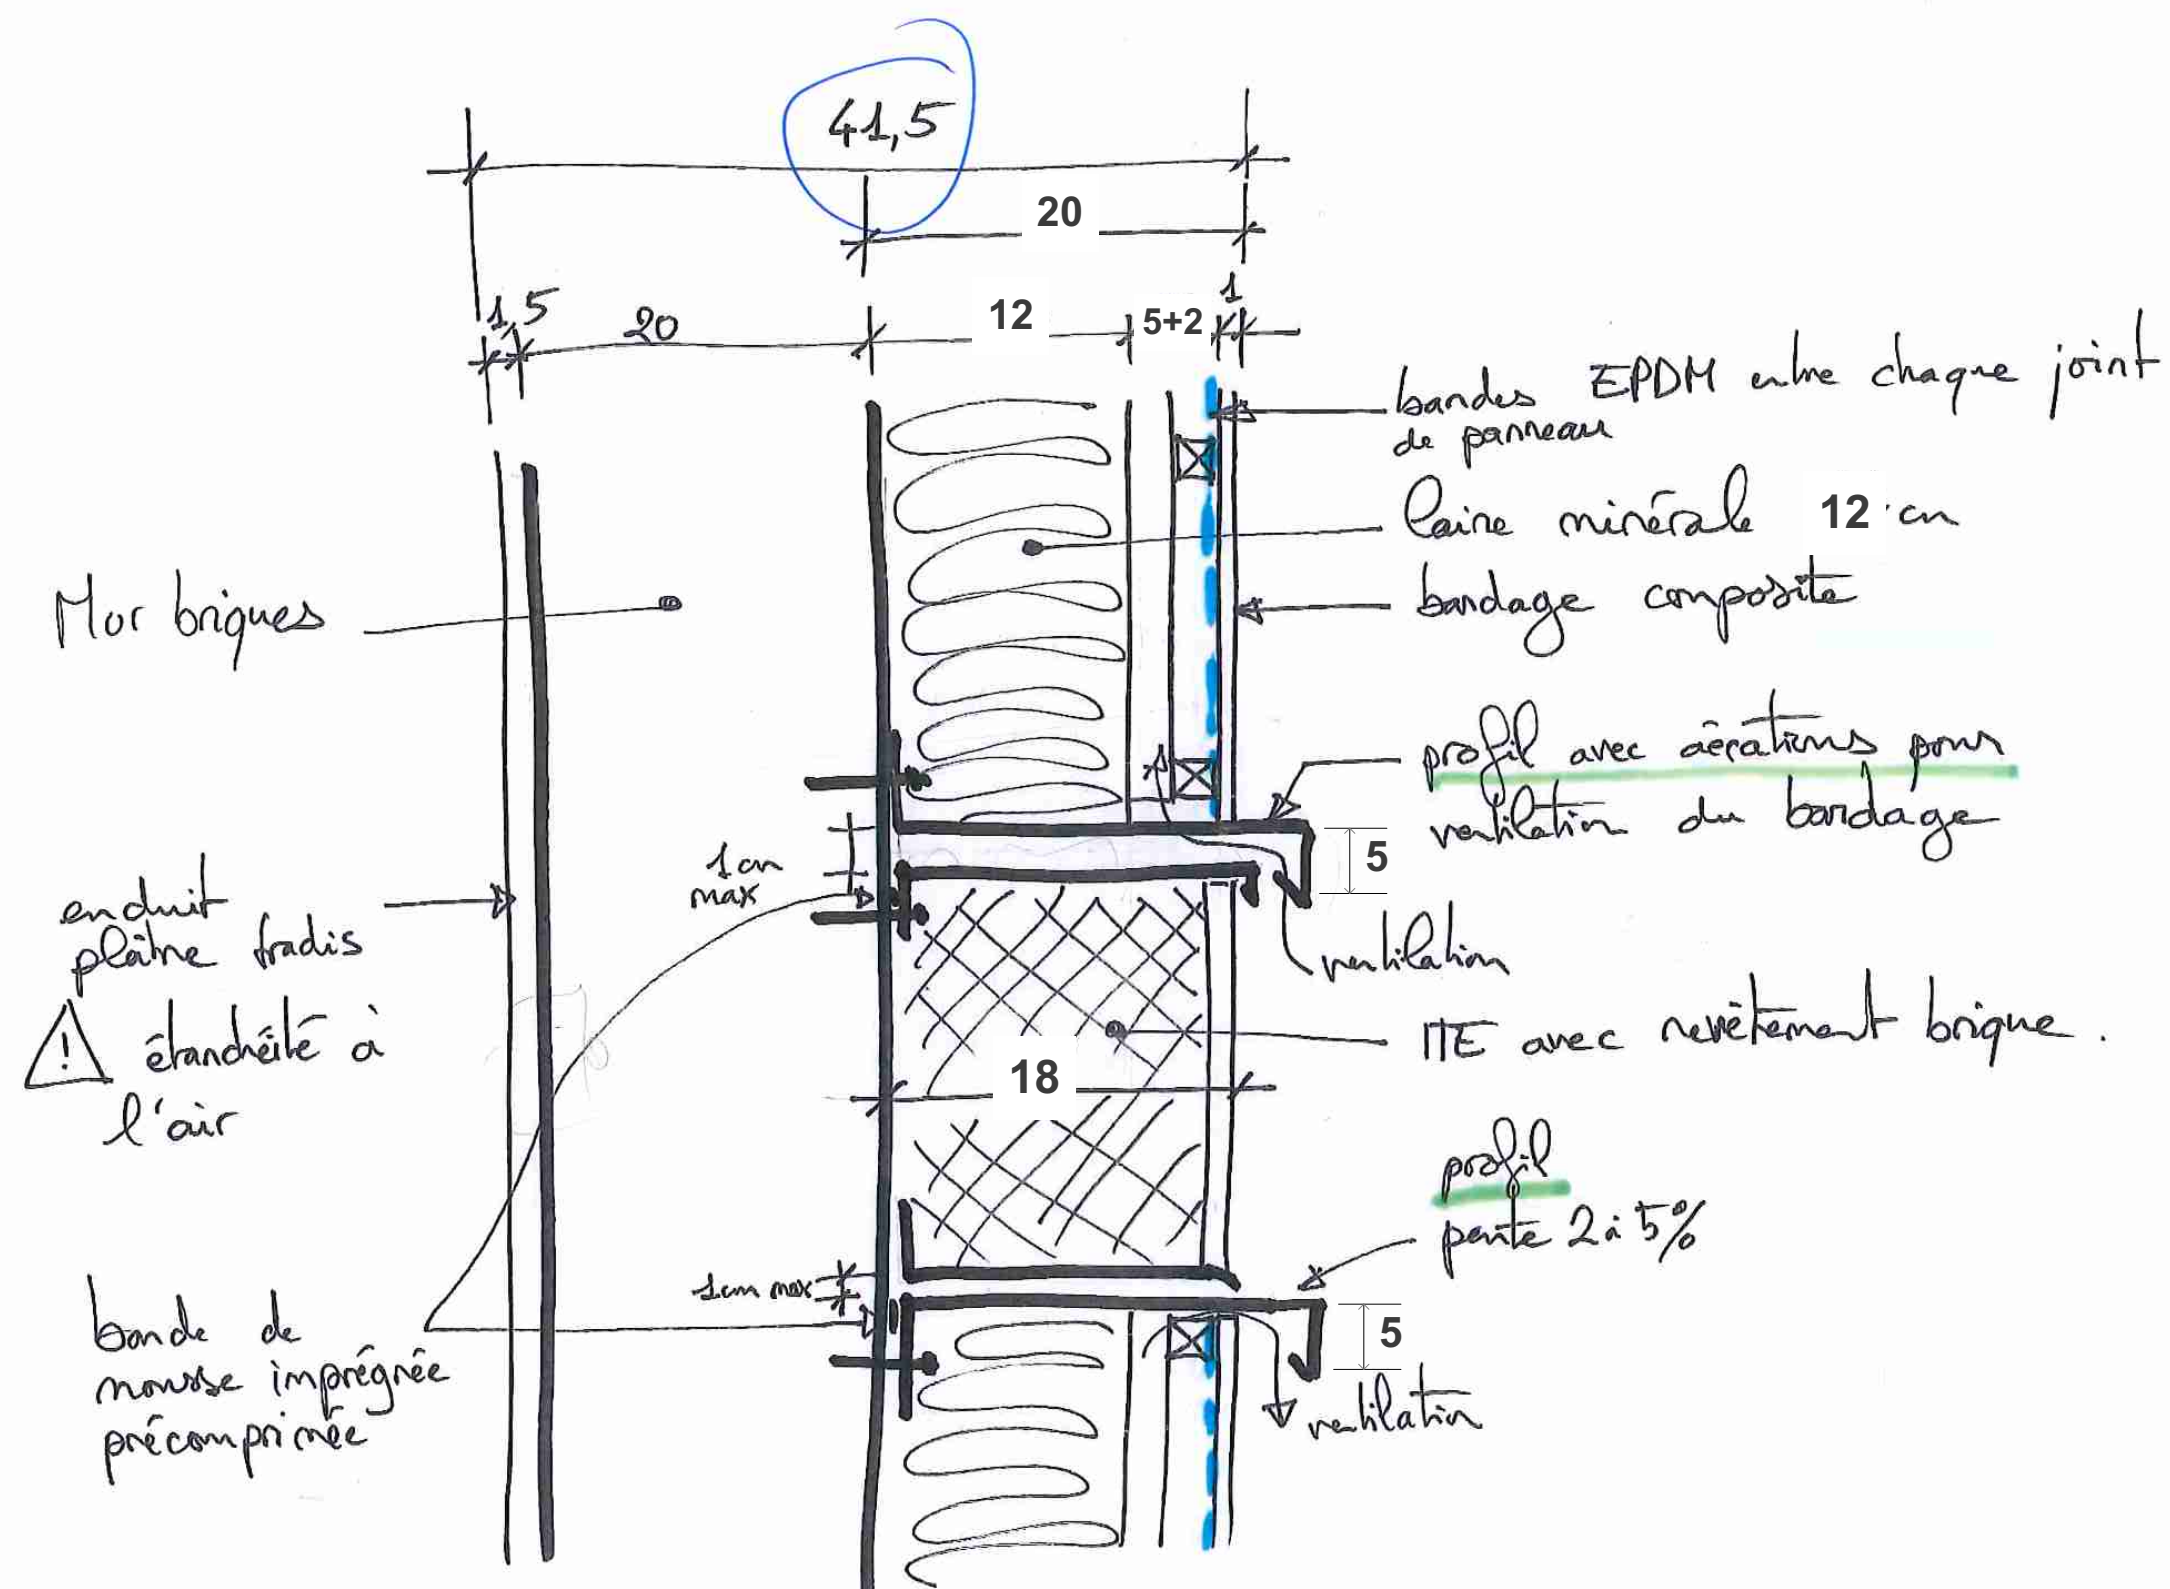 41,5
20
1,5
20
12
5+2
1
bandes EPDM entre chaque joint
de panneau
laine minérale 12 cm
bardage composite
Mur briques
profil avec aérations pour
ventilation du bardage
5
1cm
max
enduit
plâtre tradis
étanchéité à
l'air
!
ventilation
ITE avec revêtement brique.
18
profil
pente 2 à 5%
1cm max
5
bande de
mousse imprégnée
précomprimée
ventilation